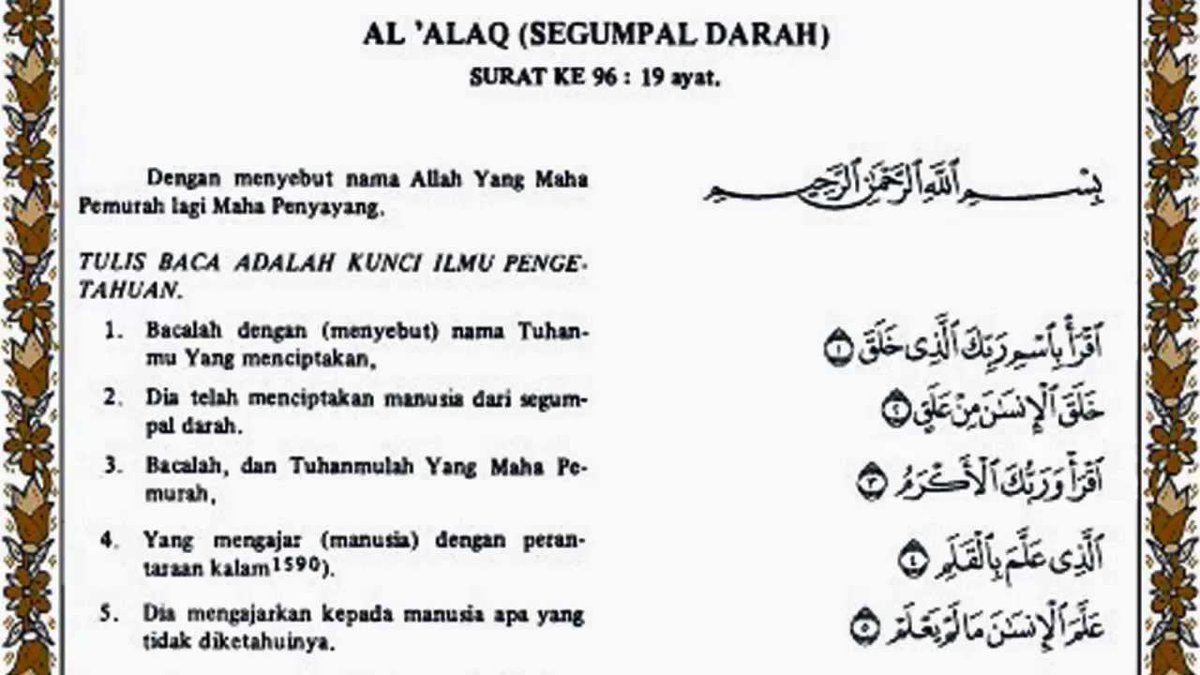 AL 'ALAQ (SEGUMPAL DARAH)
SURAT KE 96 : 19 ayat.
Dengan menyebut nama Allah Yang Maha
Pemurah lagi Maha Penyayang.
بِسْمِ اللَّهِ الرَّحْمَٰنِ الرَّحِيمِ
TULIS BACA ADALAH KUNCI ILMU PENGE-
TAHUAN.
1. Bacalah dengan (menyebut) nama Tuhan-
mu Yang menciptakan,
اَقْرَأْ بِاسْمِ رَبِّكَ الَّذِى خَلَقَ ١
2. Dia telah menciptakan manusia dari segum-
pal darah.
خَلَقَ الْإِنسَٰنَ مِنْ عَلَقٍ ٢
3. Bacalah, dan Tuhanmulah Yang Maha Pe-
murah,
اَقْرَأْ وَرَبُّكَ الْأَكْرَمُ ٣
4. Yang mengajar (manusia) dengan peran-
taraan kalam1590).
الَّذِى عَلَّمَ بِالْقَلَمِ ٤
5. Dia mengajarkan kepada manusia apa yang
tidak diketahuinya.
عَلَّمَ الْإِنسَٰنَ مَا لَمْ يَعْلَمْ ٥